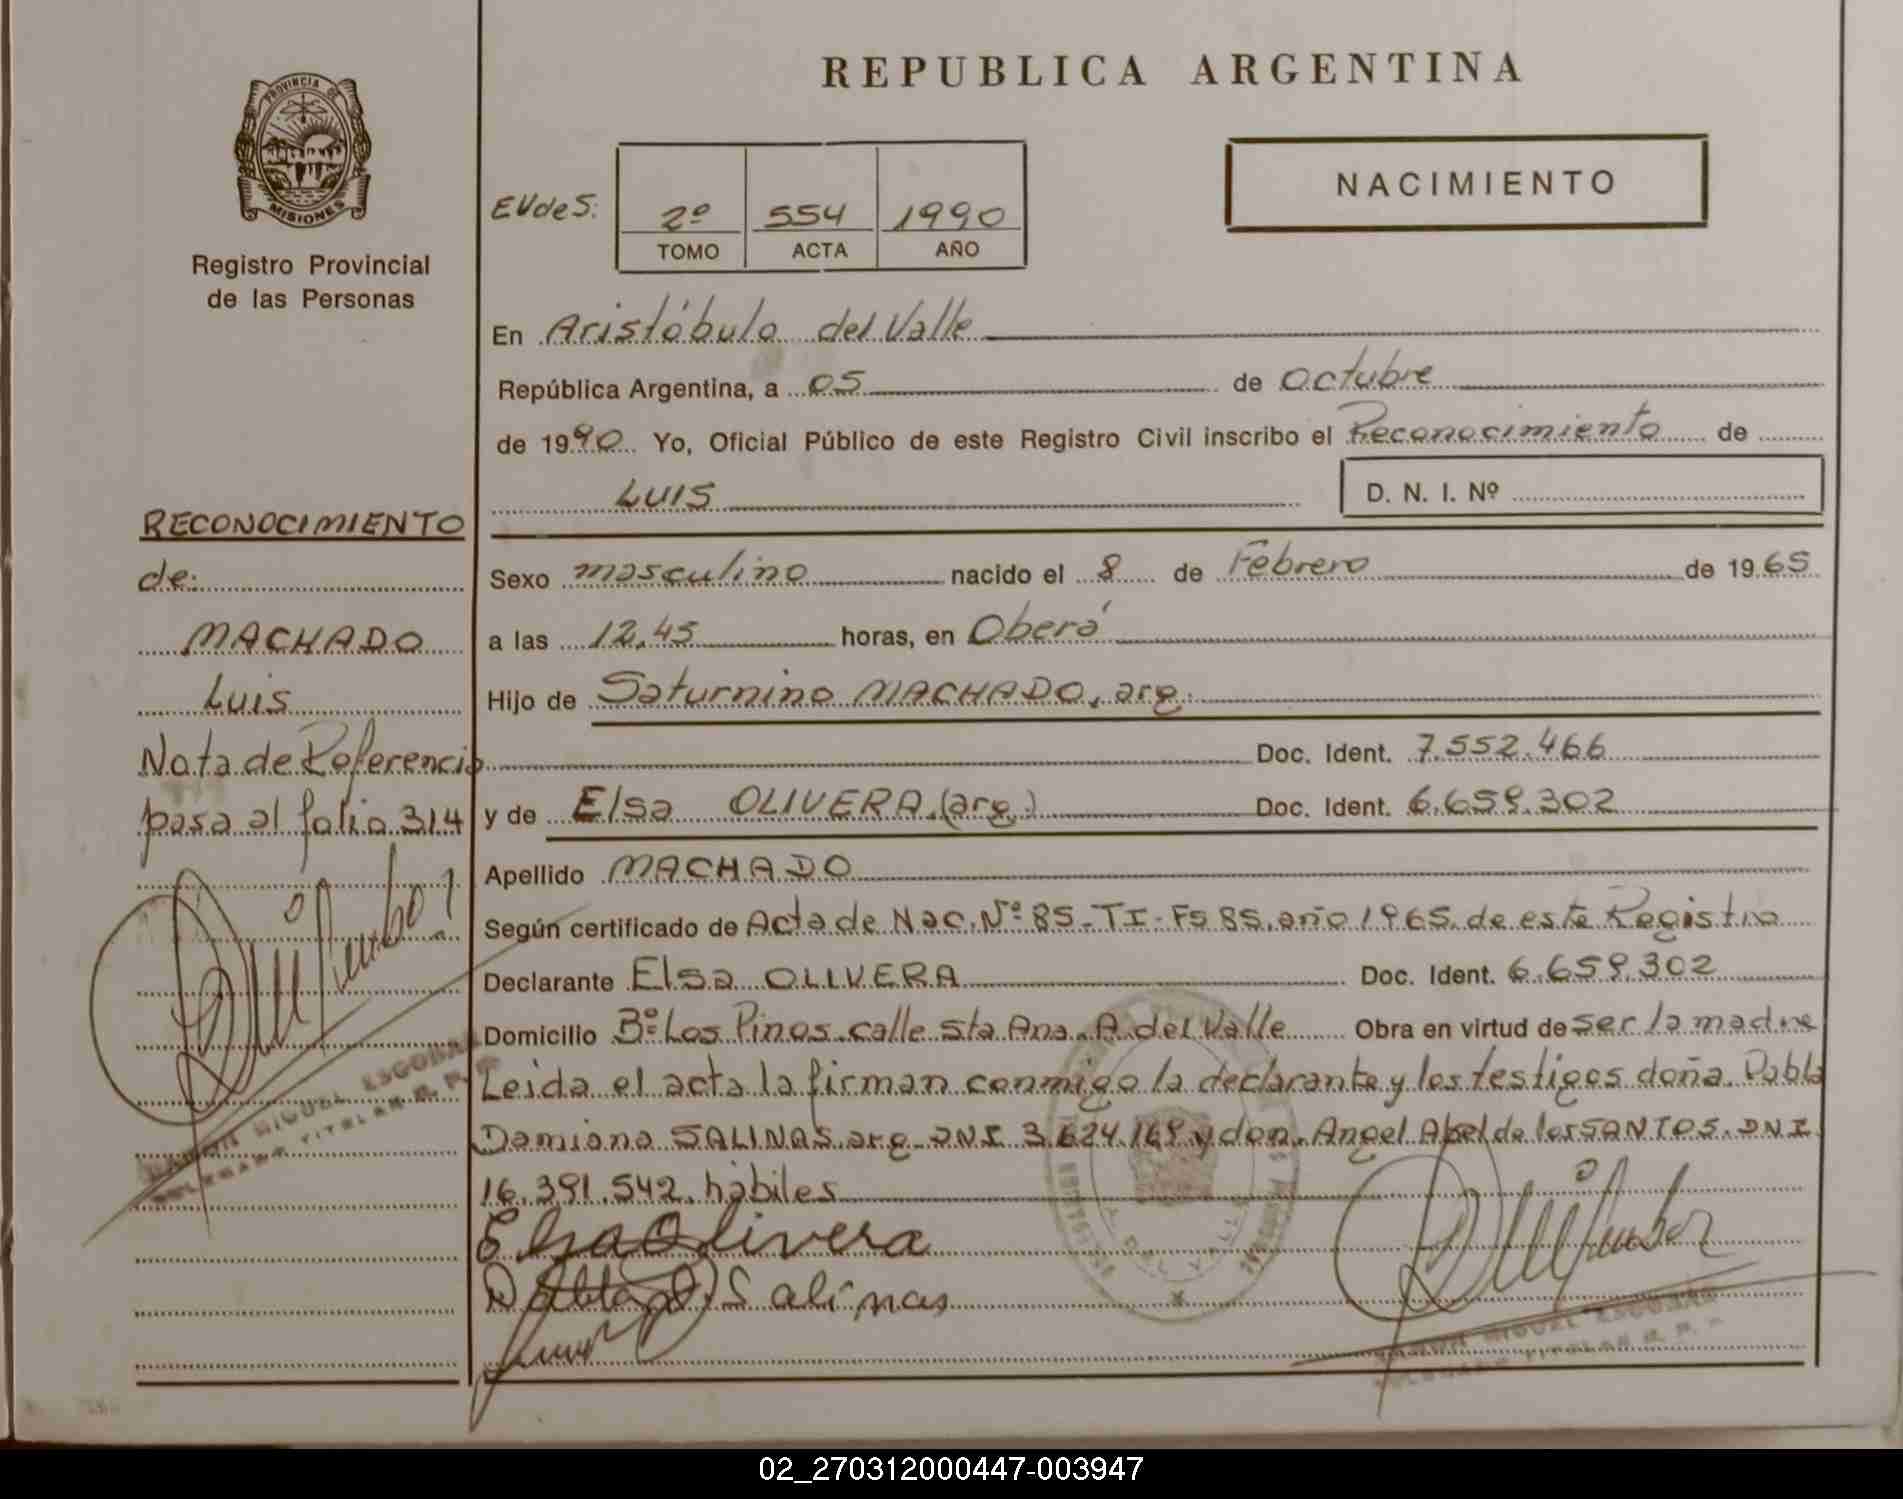 REPUBLICA ARGENTINA
PROVINCIA DE
MISIONES
Registro Provincial
de las Personas
NACIMIENTO
EVdeS: 2º 554 1990
TOMO ACTA AÑO
En Aristóbulo del Valle
República Argentina, a 05 de octubre
de 1990 Yo, Oficial Público de este Registro Civil inscribo el Reconocimiento de
LUIS
D. N. I. Nº
RECONOCIMIENTO
de:
MACHADO
Luis
Nota de Referencia
pasa al folio 314
Sexo masculino nacido el 8 de Febrero de 1965
a las 12,45 horas, en Oberá
Hijo de Saturnino MACHADO, arg.
Doc. Ident. 7.552.466
y de Elsa OLIVERA,(arg.) Doc. Ident. 6.659.302
Apellido MACHADO
Según certificado de Acta de Nac. Nº 85-TI-Fº 85, año 1965, de este Registro
Declarante Elsa OLIVERA Doc. Ident. 6.659.302
Domicilio Bº Los Pinos, calle Sta Ana, A. del Valle Obra en virtud de ser la madre
Leida el acta la firman conmigo la declarante y los testigos doña Pabla
Damiana SALINAS, arg. DNI 3.624.169 y don Angel Abel de los SANTOS, DNI
16.391.542, hábiles
Elsa Olivera
Pabla D Salinas
MIGUEL ESCOBAR
TITULAR R. P. P.
A. DEL VALLE
MIGUEL ESCOBAR
TITULAR R. P. P.
02_270312000447-003947